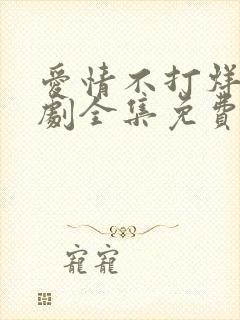 愛情不打烊
劇全集免費
寵寵